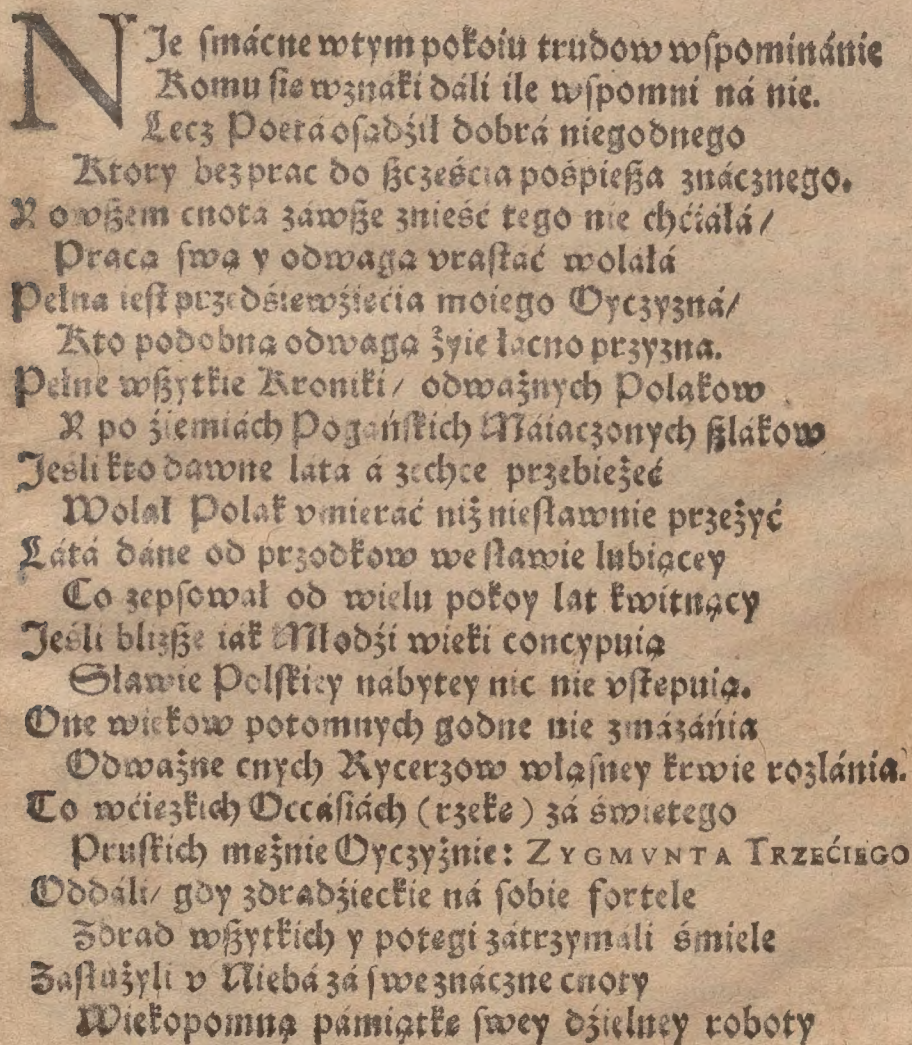 NJe smácne wtym pokoiu trudow wspominánie
Komu się wznáki dáli ile wspomni ná nie.
Lecz Poetá osądźił dobrá niegodnego
Ktory bez prac do szczęśćia pośpiesza znácznego.
Y owszem cnotá záwsze znieść tego nie chćiáłá/
Pracą swą y odwagą vrastáć wolałá
Pełna iest przedśięwźięćia moiego Oyczyzná/
Kto podobną odwagą żyie łacno przyzna.
Pełne wszytkie Kroniki/ odważnych Polakow
Y po źiemiách Pogáńskich Máiaczonych szlákow
Jeśli kto dawne látá á zechce przebieżeć
Wolał Polak vmieráć niż niesławnie przeżyć
Látá dáne od przodkow we sławie lubiącey
Co zepsował od wielu pokoy lat kwitnący
Jeśli bliższe iák Młodźi wieki concypuią
Sławie Polskiey nábytey nic nie vstępuią.
One wiekow potomnych godne nie zmázánia
Odważne cnych Rycerzow własney krwie rozlánia.
To wćiężkich Occásiách (rzekę) zá świętego
Pruskich mężnie Oyczyźnie: ZYGMVNTA TRZEĆIEGO
Oddáli/ gdy zdradźieckie ná sobie fortele
Zdrad wszytkich y potęgi zátrzymáli śmiele
Zasłużyli v Niebá zá swe znáczne cnoty
Wiekopomną pámiątkę swey dźielney roboty